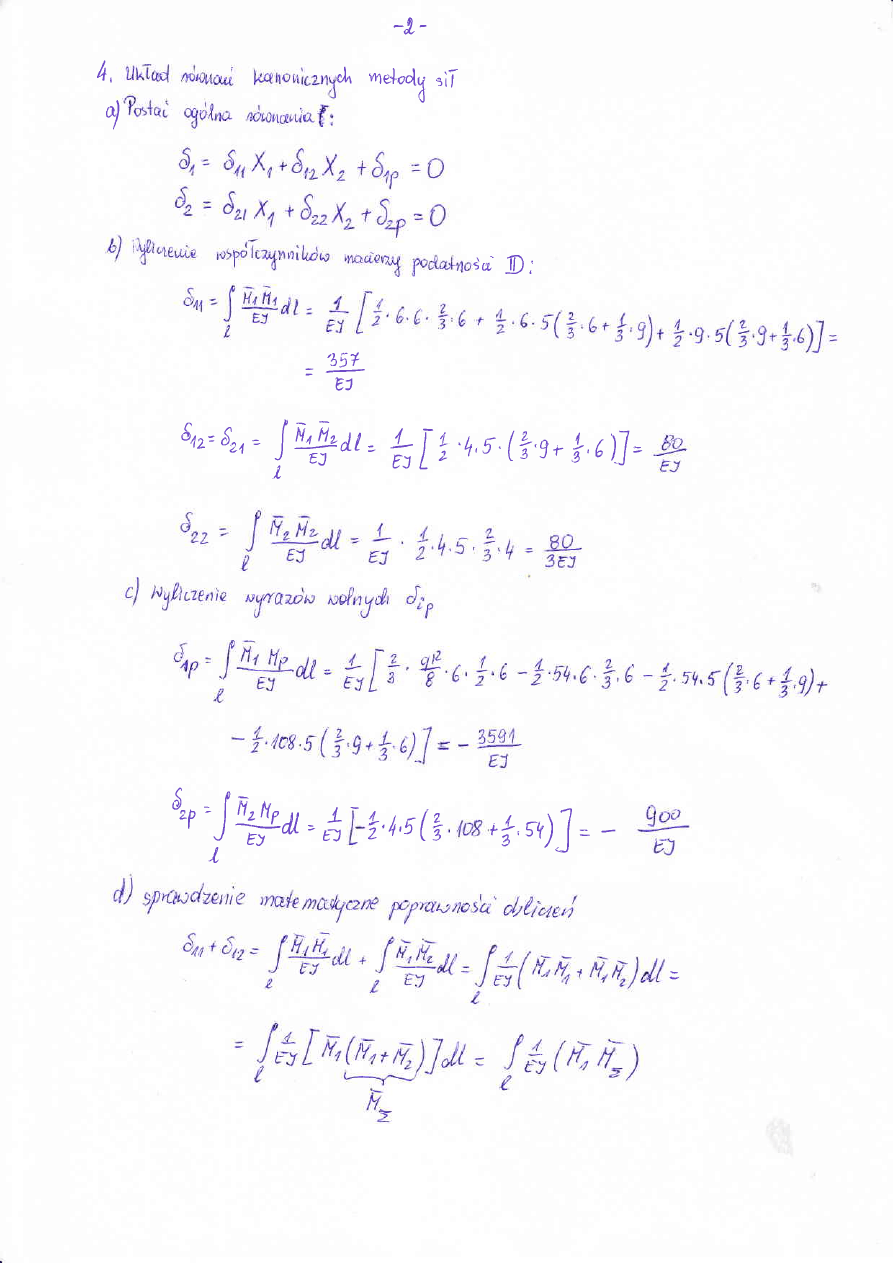 -2-
4. Układ równań kanonicznych metody sił
a) Postać ogólna równania:
δ₁ = δ₁₁ X₁ + δ₁₂ X₂ + δ₁p = 0
δ₂ = δ₂₁ X₁ + δ₂₂ X₂ + δ₂p = 0
b) Wyliczenie współczynników macierzy podatności D:
δ₁₁ = ∫ₗ M̄₁M̄₁/EJ dl = 1/EJ [1/2 · 6 · 6 · 2/3 · 6 + 1/2 · 6 · 5(2/3 · 6 + 1/3 · 9) + 1/2 · 9 · 5(2/3 · 9 + 1/3 · 6)] =
= 357/EJ
δ₁₂ = δ₂₁ = ∫ₗ M̄₁M̄₂/EJ dl = 1/EJ [1/2 · 4 · 5 · (2/3 · 9 + 1/3 · 6)] = 80/EJ
δ₂₂ = ∫ₗ M̄₂M̄₂/EJ dl = 1/EJ · 1/2 · 4 · 5 · 2/3 · 4 = 80/3EJ
c) Wyliczenie wyrazów wolnych δip
δ₁p = ∫ₗ M̄₁Mp/EJ dl = 1/EJ [2/3 · ql²/8 · 6 · 1/2 · 6 - 1/2 · 54 · 6 · 2/3 · 6 - 1/2 · 54 · 5(2/3 · 6 + 1/3 · 9) +
- 1/2 · 108 · 5 (2/3 · 9 + 1/3 · 6)] = - 3591/EJ
δ₂p = ∫ₗ M̄₂Mp/EJ dl = 1/EJ [-1/2 · 4 · 5 (2/3 · 108 + 1/3 · 54)] = - 900/EJ
d) sprawdzenie matematyczne poprawności obliczeń
δ₁₁ + δ₁₂ = ∫ₗ M̄₁M̄₁/EJ dl + ∫ₗ M̄₁M̄₂/EJ dl = ∫ₗ 1/EJ (M̄₁M̄₁ + M̄₁M̄₂) dl =
= ∫ₗ 1/EJ [M̄₁(M̄₁ + M̄₂)] dl = ∫ₗ 1/EJ (M̄₁ M̄Σ)
M̄Σ